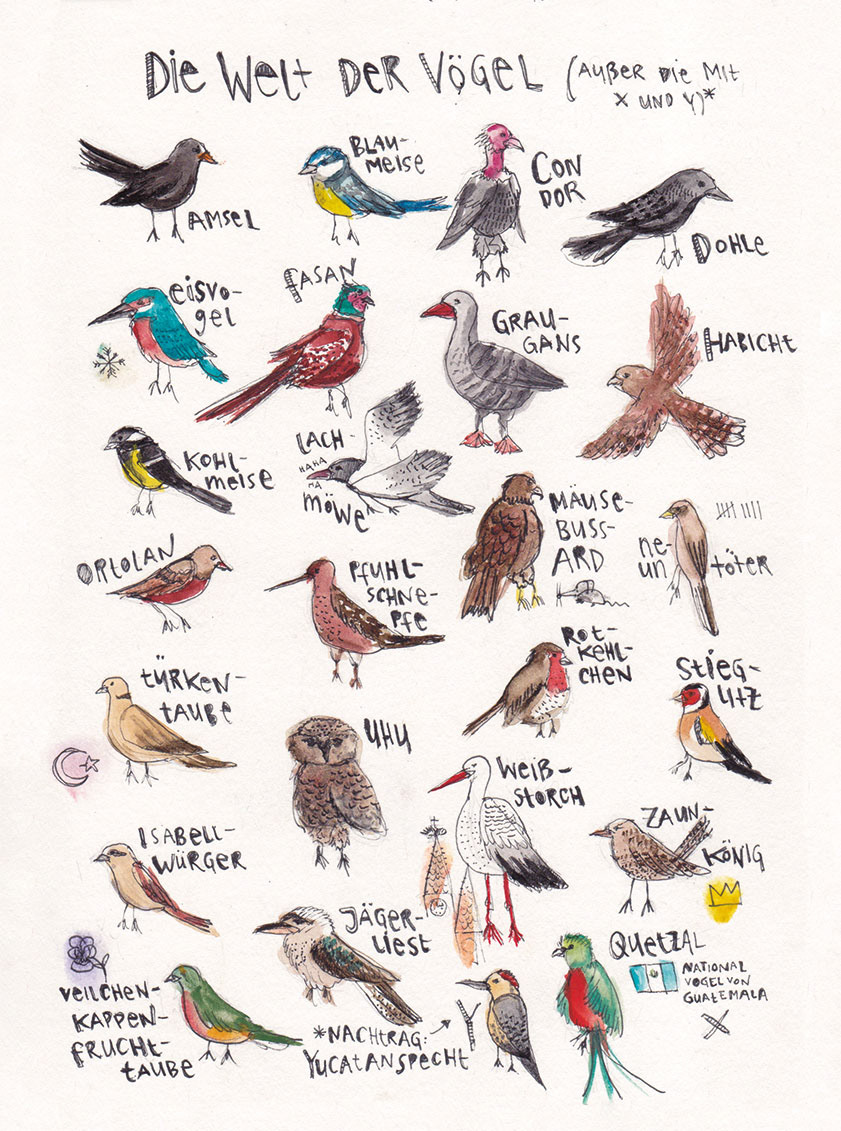 Die Welt der Vögel (außer die mit
x und y)*
Amsel
Blau-
meise
Con
dor
Dohle
eisvo-
gel
fasan
Grau-
gans
Habicht
Kohl-
meise
Lach-
HAHA
HA
möwe
Mäuse-
buss-
ard
ne-
un
töter
Ortolan
Pfuhl-
schne-
pfe
Rot-
kehl-
chen
Stieg-
litz
türken-
taube
Uhu
Weiß-
storch
Zaun-
könig
Isabell-
würger
Jäger-
liest
Quetzal
National
vogel von
Guatemala
Veilchen-
kappen-
frucht-
taube
*Nachtrag:
Yucatanspecht
Y
X